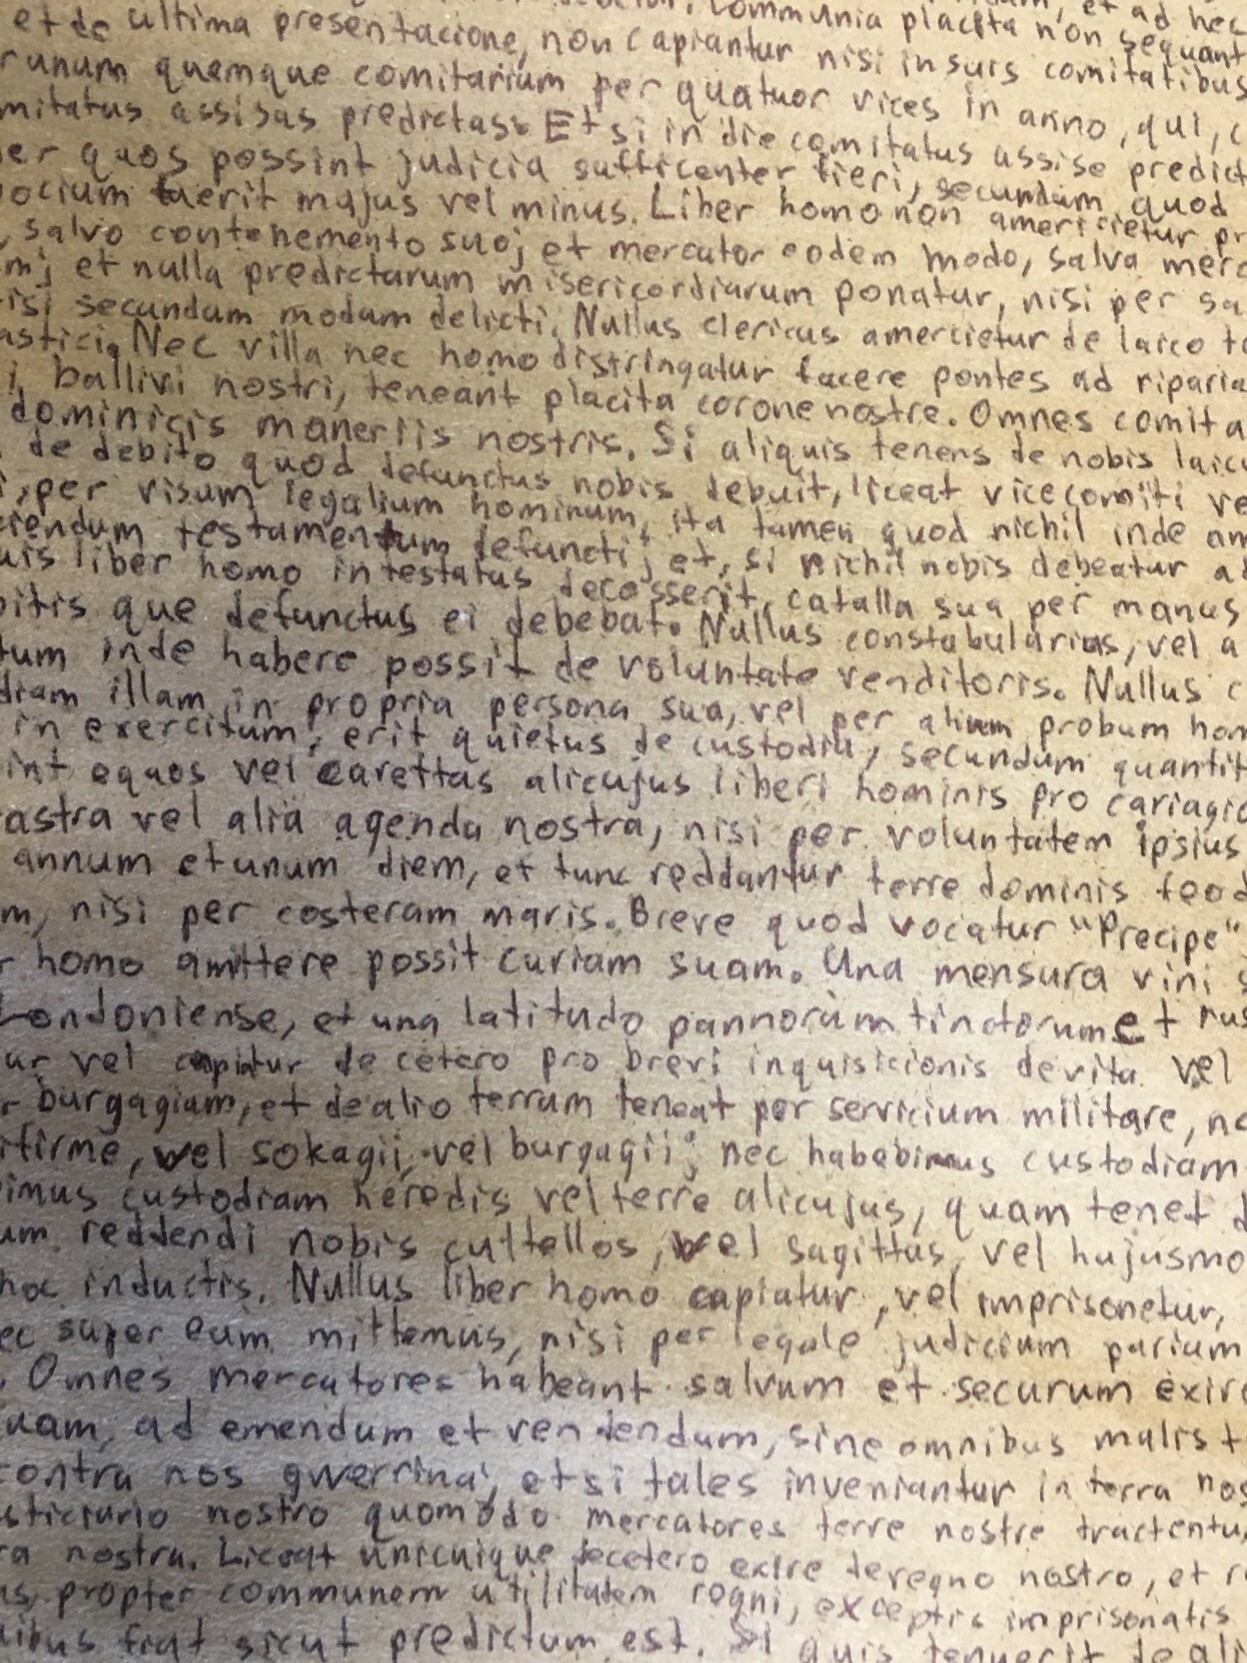 communia placita non sequant
et de ultima presentacione, non capiantur nisi in suis comitatibus
runum quemque comitarium per quatuor vices in anno, qui, c
mitatus assisas predictass Et si in die comitatus assise predict
er quos possint judicia sufficenter fieri, secundum quod
ocium fuerit majus vel minus. Liber homo non americietur pr
, salvo contenemento suo; et mercator eodem modo, salva merc
m; et nulla predictarum misericordiarum ponatur, nisi per sa
isi secundam modam delicti. Nullus clericus amercietur de laico t
astici. Nec villa nec homo distringatur facere pontes ad riparia
i, ballivi nostri, teneant placita corone nostre. Omnes comita
dominicis maneriis nostris. Si aliquis tenens de nobis laicu
de debito quod defunctus nobis debuit, liceat vicecomiti ve
i, per visum legalium hominum, ita tamen quod nichil inde am
ciendum testamentum defuncti; et, si nichil nobis debeatur ab
uis liber homo intestatus decesserit, catalla sua per manus
bitis que defunctus ei debebat. Nullus constabularius, vel a
tum inde habere possit de voluntate venditoris. Nullus c
diam illam in propria persona sua, vel per alium probum hom
in exercitum, erit quietus de custodia, secundum quantit
int equos vel carettas alicujus liberi hominis pro cariagio
astra vel alia agenda nostra, nisi per voluntatem ipsius
annum et unum diem, et tunc reddantur terre dominis feod
m, nisi per costeram maris. Breve quod vocatur "Precipe"
r homo amittere possit curiam suam. Una mensura vini s
Londoniense, et una latitudo pannorum tinctorum et rus
ur vel capiatur de cetero pro brevi inquisicionis de vita vel
r burgagiam, et de alio terram teneat per servicium militare, no
ifirme, vel sokagii, vel burgagii; nec habebimus custodiam
bimus custodiam heredis vel terre alicujus, quam tenet d
um reddendi nobis cultellos, vel sagittas, vel hujusmo
hoc inductis. Nullus liber homo capiatur, vel imprisonetur,
ec super eum mittemus, nisi per legale judicium parium
. Omnes mercatores habeant salvum et securum exire
quam, ad emendum et vendendum, sine omnibus malis t
contra nos gwerrina; et si tales inveniantur in terra nos
sticiario nostro quomodo mercatores terre nostre tractentu
ra nostra. Liceat unicuique decetero exire de regno nostro, et r
is, propter communem utilitatem regni, exceptis imprisonatis
ibus fiat sicut predictum est. Si quis tenuerit de ali